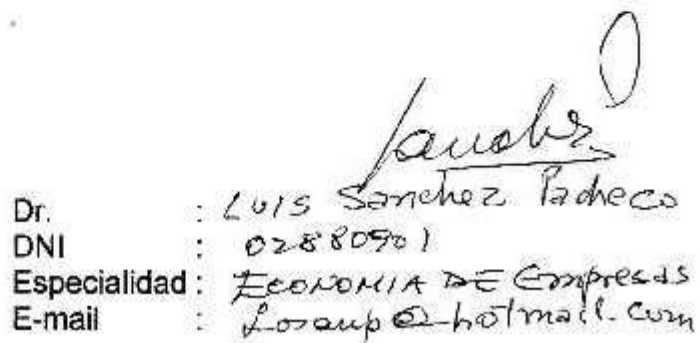 Dr. : LUIS Sanchez Pacheco
DNI : 02880901
Especialidad : ECONOMIA DE Empresas
E-mail : Losanp@hotmail.com